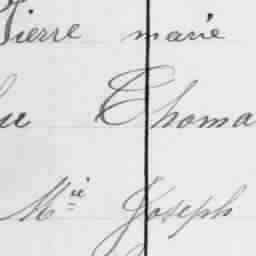 Pierre marie
Thoma
Mie Joseph